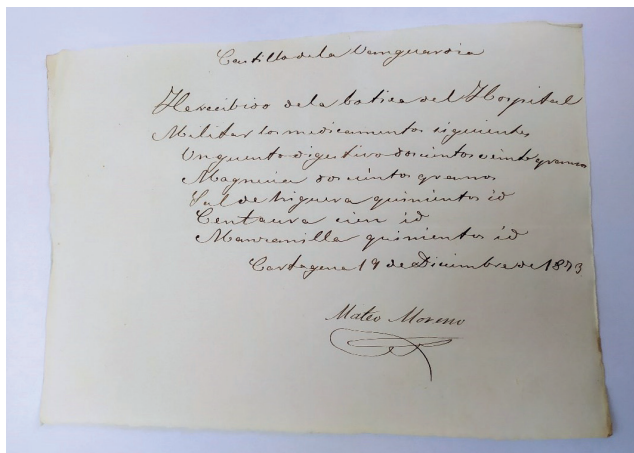 Castillo de la Vanguardia
He recibido de la botica del Hospital
Militar los medicamentos siguientes
Unguento digestivo doscientos veinte gramos
Magnecia doscientos gramos
Sal de higuera quinientos id
Centaura cien id
Manzanilla quinientos id
Cartagena 19 de Diciembre de 1873
Mateo Moreno